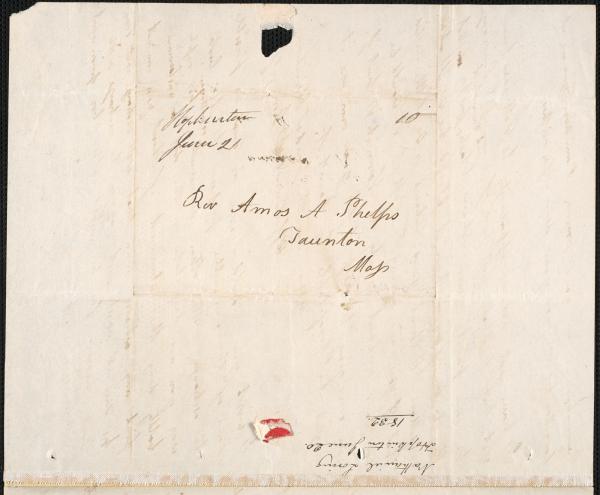 Hopkinton
June 21
10
Rev Amos A Phelps
Taunton
Mass
Nathaniel
Hopkinton June 20.
1832.